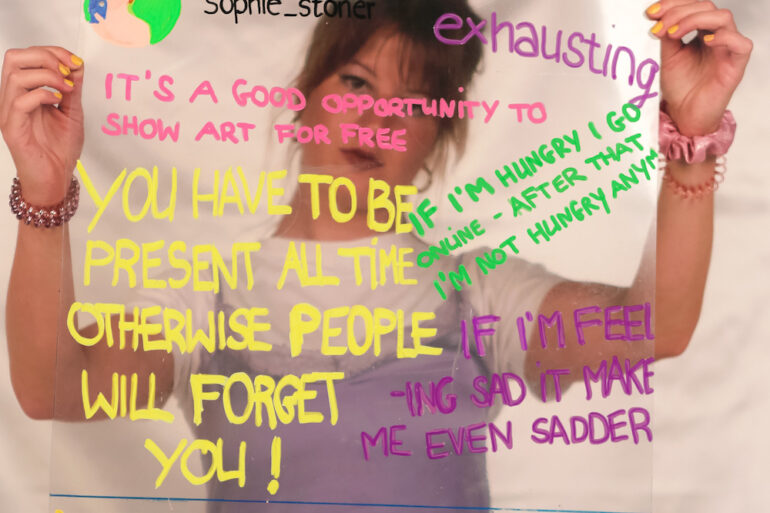 sophie_stoner
exhausting
IT'S A GOOD OPPORTUNITY TO
SHOW ART FOR FREE
IF I'M HUNGRY I GO
ONLINE - AFTER THAT
I'M NOT HUNGRY ANYM
YOU HAVE TO BE
PRESENT ALL TIME
OTHERWISE PEOPLE
WILL FORGET
YOU!
IF I'M FEEL
-ING SAD iT MAKE
ME EVEN SADDER